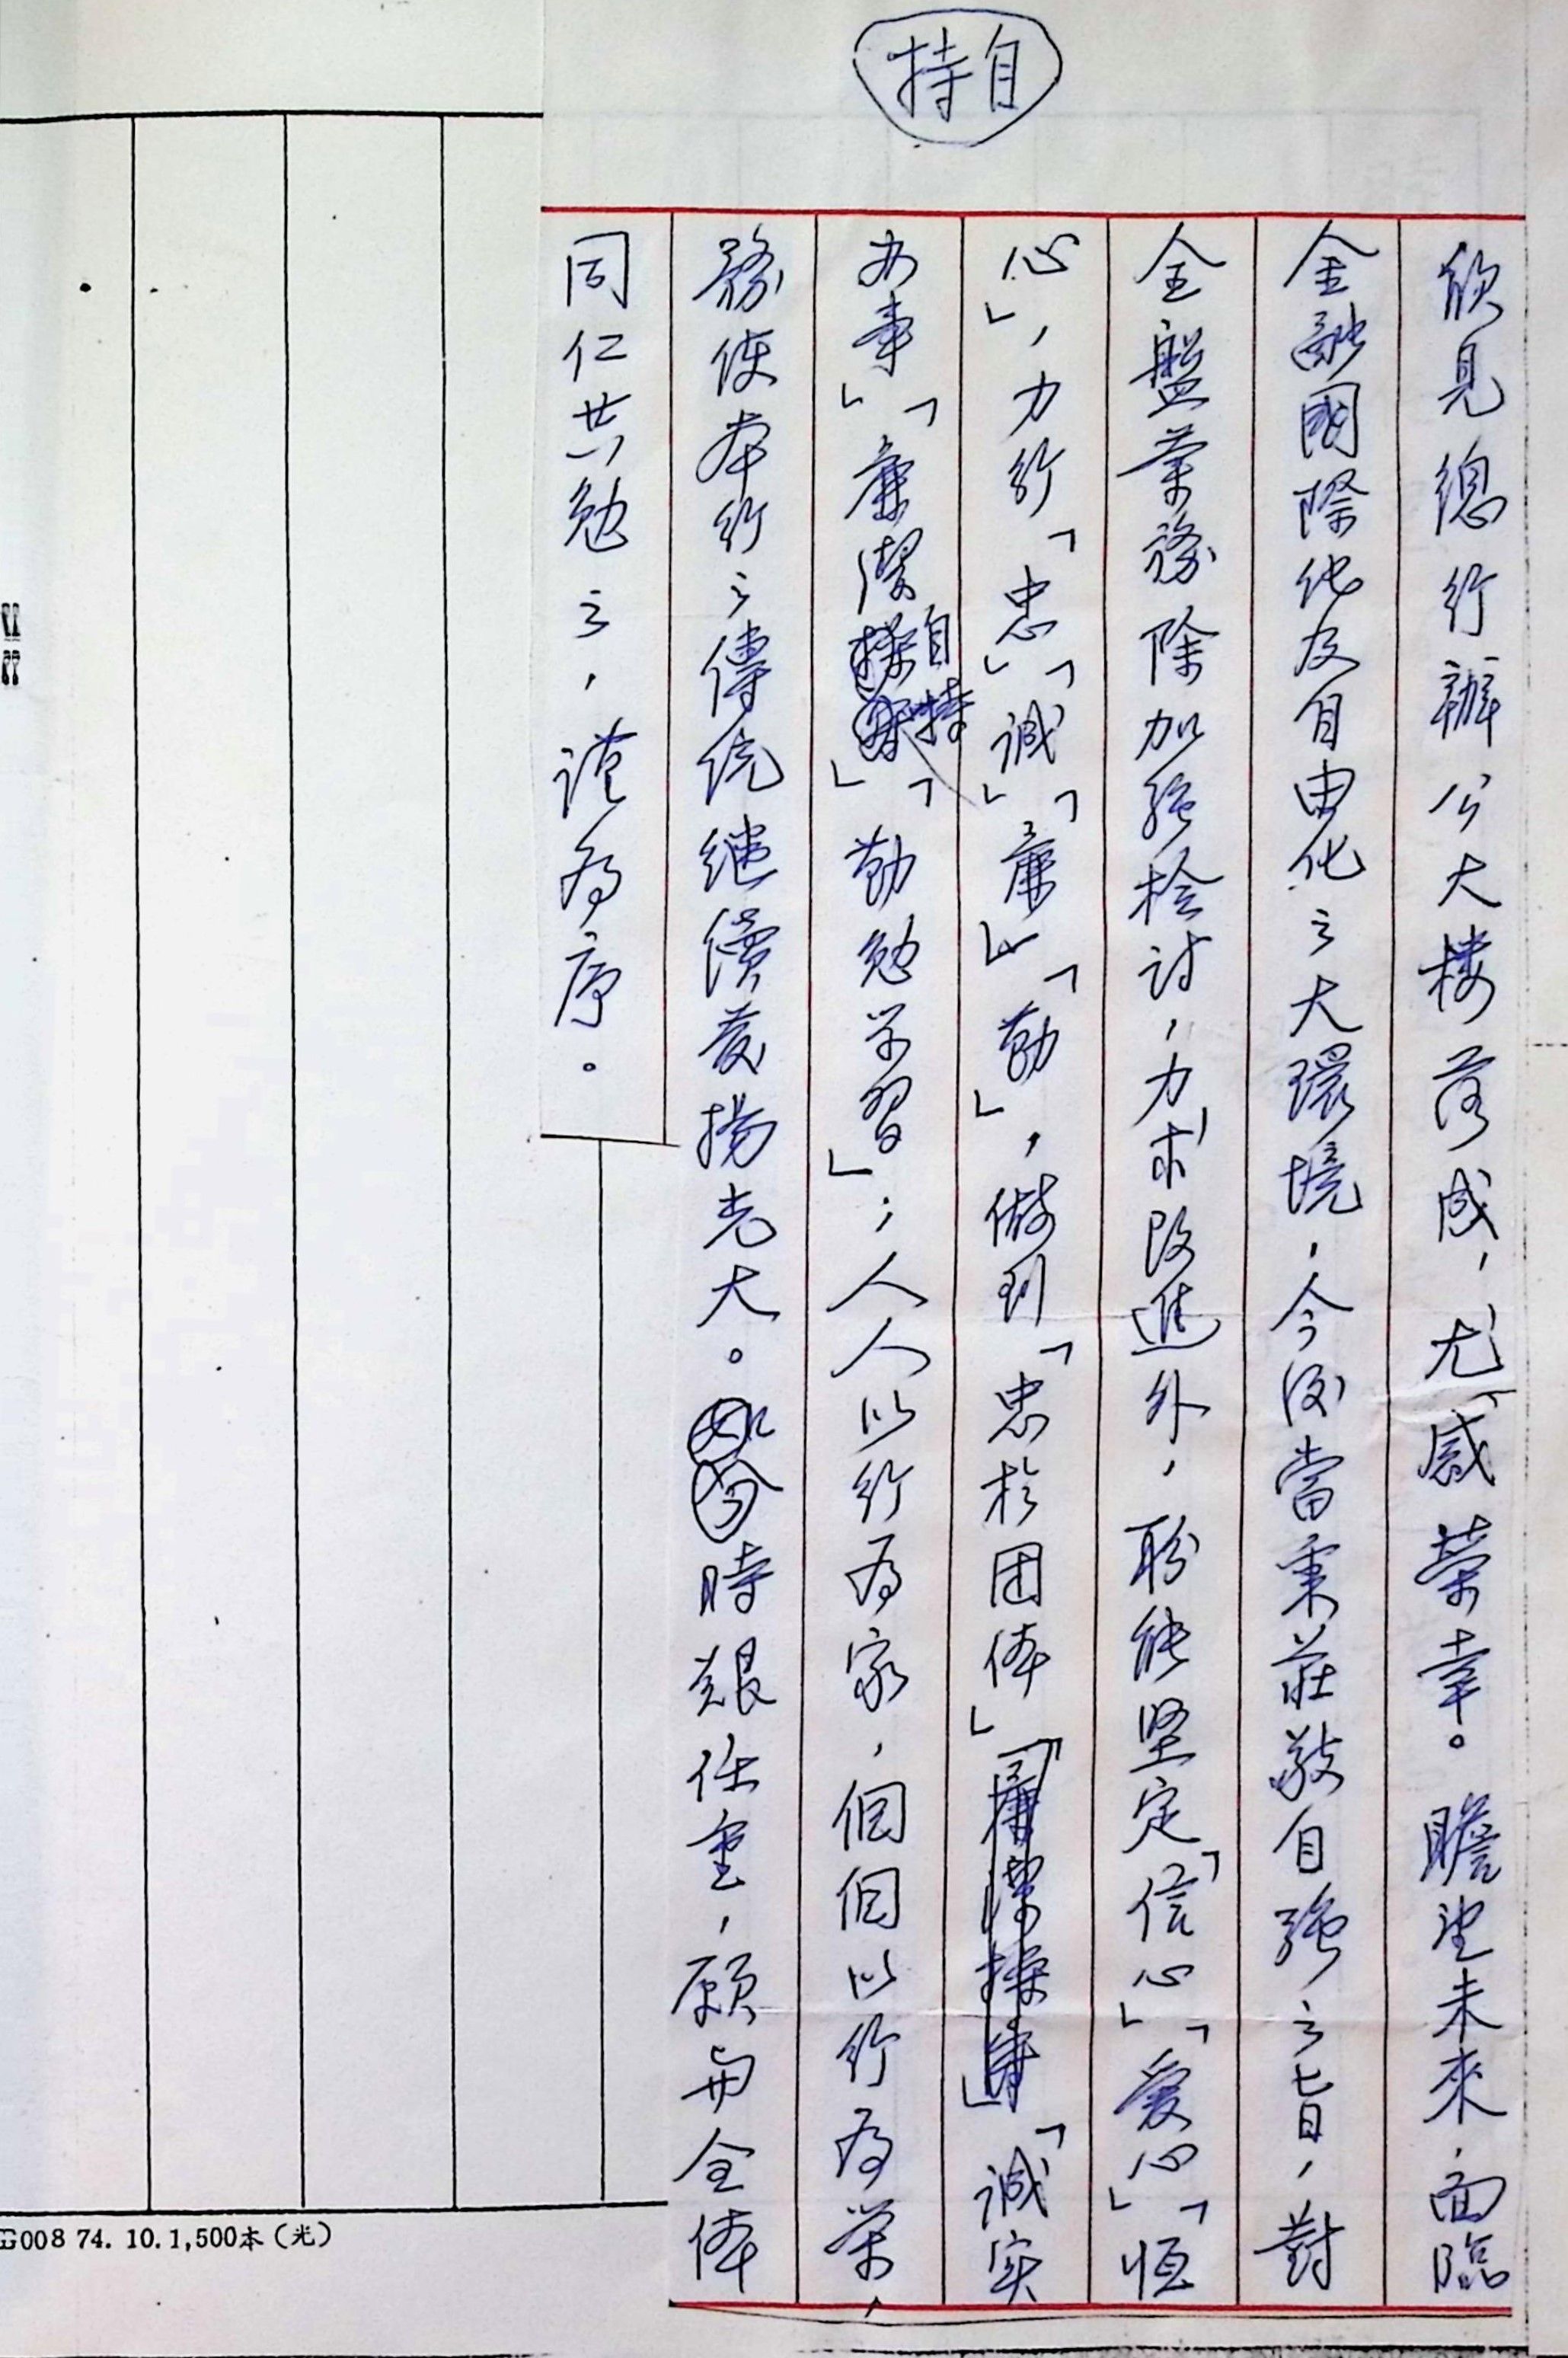 持自
欣見總行辦公大樓落成，尤感榮幸。瞻望未來，面臨
金融國際化及自由化之大環境，今後當秉莊敬自強之旨，對
全盤業務除加強檢討，力求改進外，盼能坚定「信心」「愛心」「恒
心」，力行「忠」「誠」「廉」「勤」，做到「忠於团体」「廉潔操守」「誠实
办事」「廉潔操守自持」「勤勉学習」；人人以行為家，個個以行為榮，
務使本行之傳统继續發揚光大。如今時艱任重，願與全体
同仁共勉之，謹為序。
G008 74. 10. 1,500本（光）